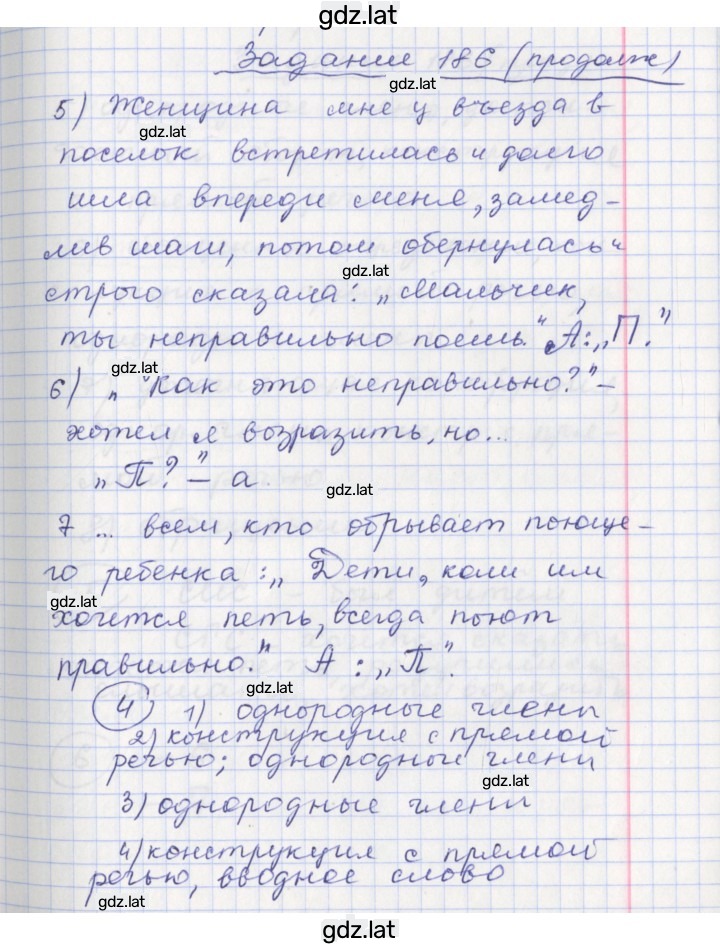 gdz.lat
Задание 186 (продолж)
gdz.lat
5) Женщина мне у въезда в
gdz.lat
поселок встретилась и долго
шла впереди меня, замед-
лив шаги, потом обернулась и
gdz.lat
строго сказала: „Мальчик,
ты неправильно поешь." А: „П."
gdz.lat
6) „Как это неправильно?" –
хотел я возразить, но...
„П?" – а.
gdz.lat
7 ... всем, кто обрывает поюще-
го ребенка: „Дети, коли им
gdz.lat
хочется петь, всегда поют
правильно." А: „П".
gdz.lat
4 1) однородные члены
2) конструкция с прямой
речью; однородный члени
gdz.lat
3) однородные члени
4) конструкция с прямой
речью, вводное слово
gdz.lat
gdz.lat